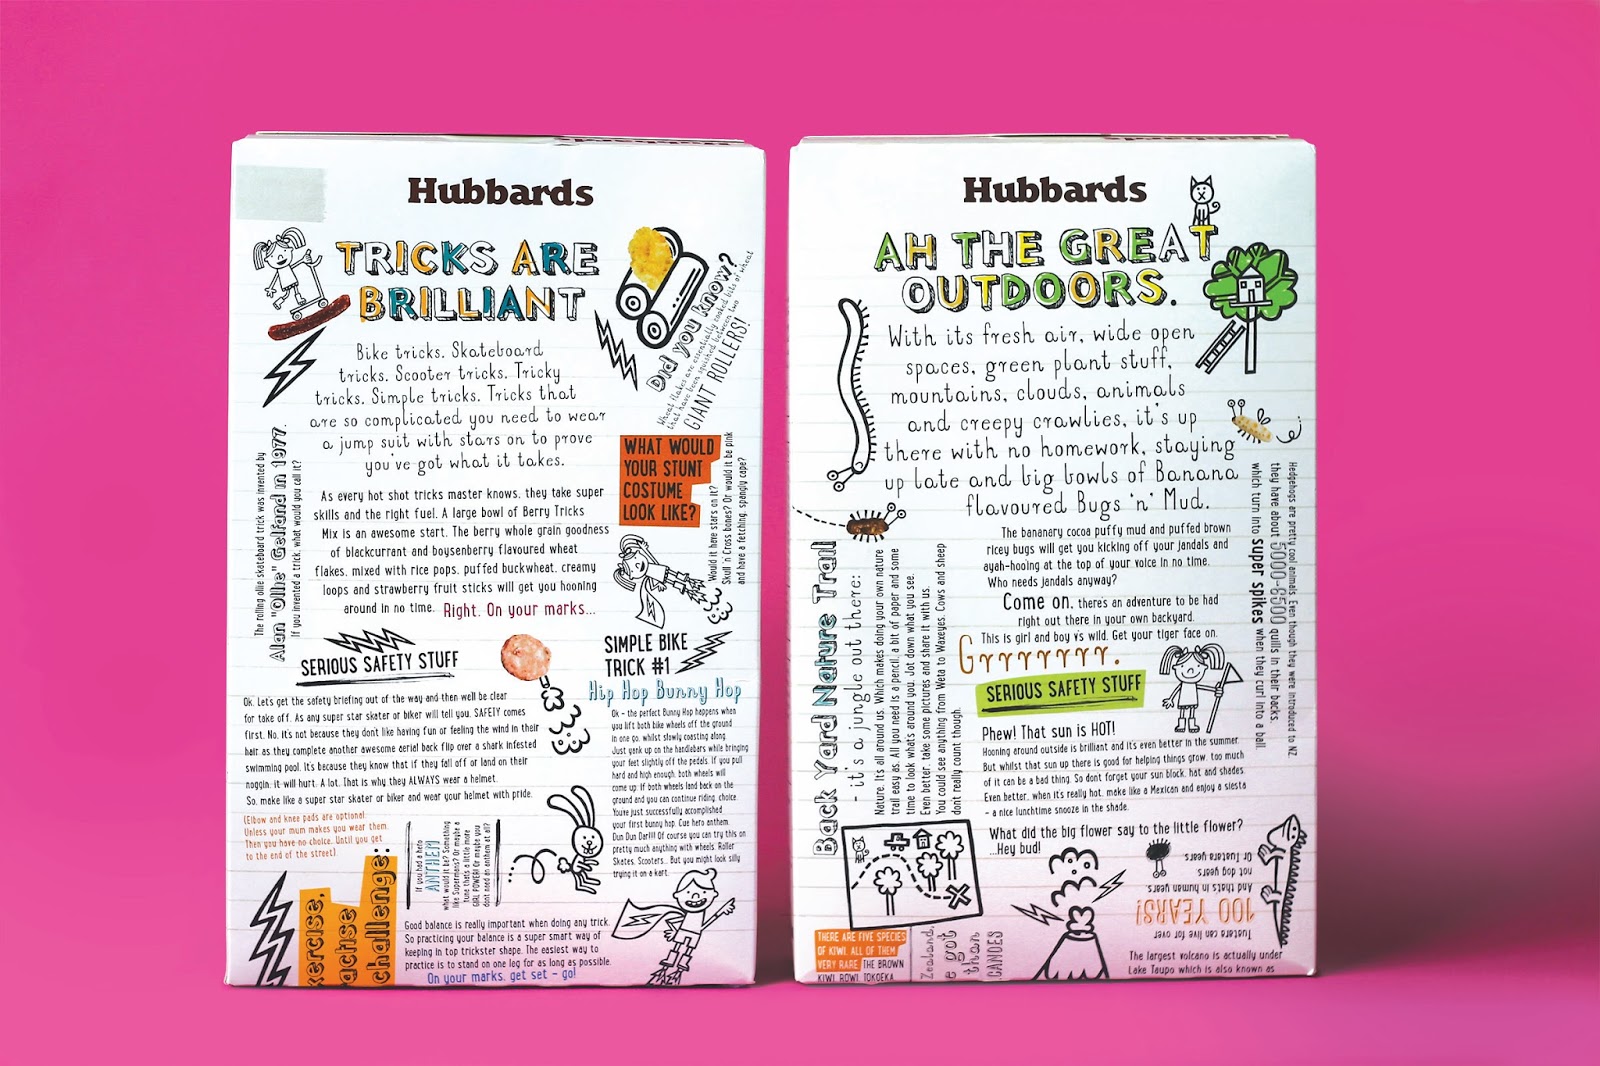 Hubbards
TRICKS ARE
BRILLIANT
Bike tricks. Skateboard
tricks. Scooter tricks. Tricky
tricks. Simple tricks. Tricks that
are so complicated you need to wear
a jump suit with stars on to prove
you've got what it takes.
Did you know?
Wheat flakes are essentially cooked bits of wheat
that have been squished between two
GIANT ROLLERS!
The rolling ollie skateboard trick was invented by
Alan "Ollie" Gelfand in 1977.
If you invented a trick, what would you call it?
As every hot shot tricks master knows, they take super
skills and the right fuel. A large bowl of Berry Tricks
Mix is an awesome start. The berry whole grain goodness
of blackcurrant and boysenberry flavoured wheat
flakes, mixed with rice pops, puffed buckwheat, creamy
loops and strawberry fruit sticks will get you hooning
around in no time. Right. On your marks...
WHAT WOULD
YOUR STUNT
COSTUME
LOOK LIKE?
Would it have stars on it?
Skull 'n' Cross bones? Or would it be pink
and have a fetching, spangly cape?
SERIOUS SAFETY STUFF
Ok. Let's get the safety briefing out of the way and then we'll be clear
for take off. As any super star skater or biker will tell you, SAFETY comes
first. No, it's not because they don't like having fun or feeling the wind in their
hair as they complete another awesome aerial back flip over a shark infested
swimming pool. It's because they know that if they fall off or land on their
noggin, it will hurt. A lot. That is why they ALWAYS wear a helmet.
So, make like a super star skater or biker and wear your helmet with pride.
(Elbow and knee pads are optional.
Unless your mum makes you wear them.
Then you have no choice. Until you get
to the end of the street).
SIMPLE BIKE
TRICK #1
Hip Hop Bunny Hop
Ok - the perfect Bunny Hop happens when
you lift both bike wheels off the ground
in one go, whilst slowly coasting along.
Just yank up on the handlebars while bringing
your feet slightly off the pedals. If you pull
hard and high enough, both wheels will
come up. If both wheels land back on the
ground and you can continue riding, choice.
You're just successfully accomplished
your first bunny hop. Cue hero anthem.
Dun Dun Dar!!! Of course you can try this on
pretty much anything with wheels. Roller
Skates, Scooters... But you might look silly
trying it on a kart.
If you had a hero
ANTHEM
what would it be? Something
like Supermans? Or maybe a
tune that's a little more
GIRL POWER! Or maybe you
dont need an anthem at all?
xercise,
actise
challenge
Good balance is really important when doing any trick.
So practicing your balance is a super smart way of
keeping in top trickster shape. The easiest way to
practice is to stand on one leg for as long as possible.
On your marks, get set - go!
Hubbards
AH THE GREAT
OUTDOORS.
With its fresh air, wide open
spaces, green plant stuff,
mountains, clouds, animals
and creepy crawlies, it's up
there with no homework, staying
up late and big bowls of Banana
flavoured Bugs 'n' Mud.
The bananary cocoa puffy mud and puffed brown
ricey bugs will get you kicking off your jandals and
ayah-hooing at the top of your voice in no time.
Who needs jandals anyway?
Come on, there's an adventure to be had
right out there in your own backyard.
This is girl and boy vs wild. Get your tiger face on.
Grrrrrrrr.
Hedgehogs are pretty cool animals. Even though they were introduced to NZ
they have about 5000-6500 quills in their backs,
which turn into super spikes when they curl into a ball.
Back Yard Nature Trail
- it's a jungle out there:
Nature. Its all around us. Which makes doing your own nature
trail easy as. All you need is a pencil, a bit of paper and some
time to look what's around you. Jot down what you see.
Even better, take some pictures and share it with us.
You could see anything from Weta to Waxeyes. Cows and sheep
dont really count though.
SERIOUS SAFETY STUFF
Phew! That sun is HOT!
Hooning around outside is brilliant and it's even better in the summer.
But whilst that sun up there is good for helping things grow, too much
of it can be a bad thing. So dont forget your sun block, hat and shades.
Even better, when it's really hot, make like a Mexican and enjoy a siesta
- a nice lunchtime snooze in the shade.
What did the big flower say to the little flower?
...Hey bud!
Tuatara can live for over
100 YEARS!
And that's in human years,
not dog years
Or Tuatara years.
THERE ARE FIVE SPECIES
OF KIWI. ALL OF THEM
VERY RARE. THE BROWN
KIWI, ROWI, TOKOEKA,
Zealand,
e got
than
CANDES
The largest volcano is actually under
Lake Taupo which is also known as